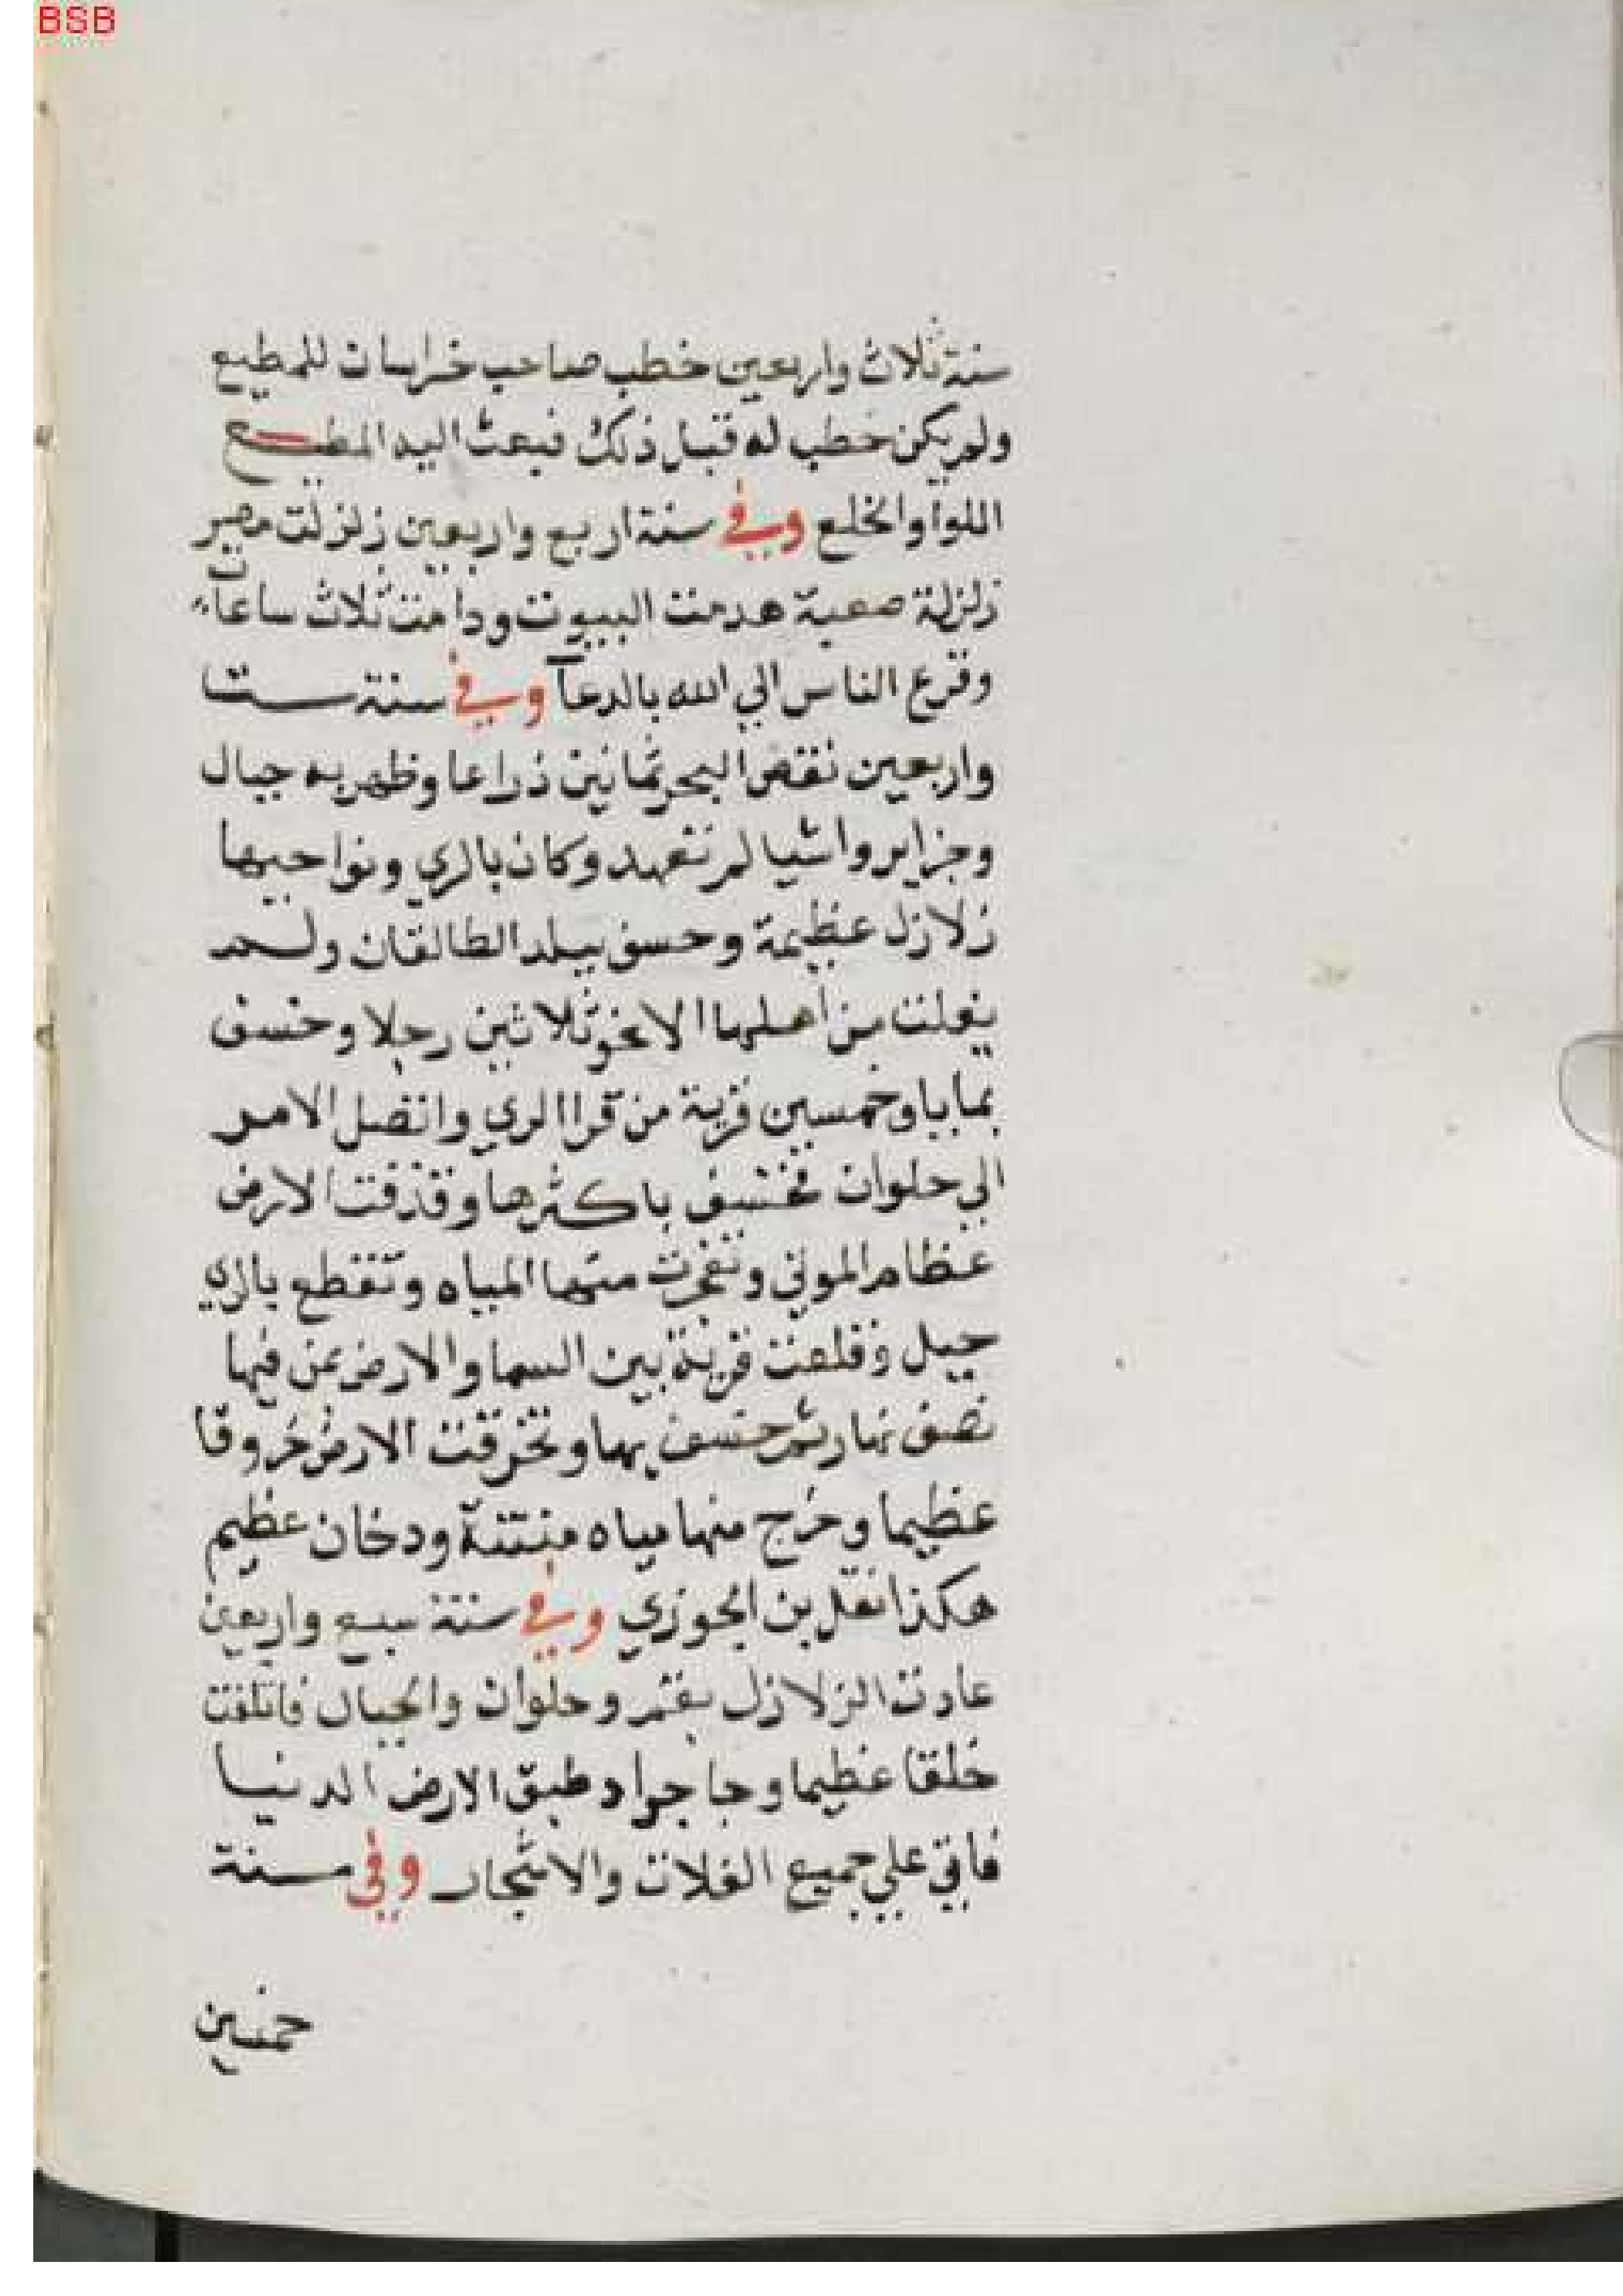 BSB
سنة ثلاث واربعين خطب صاحب خراسان للمطيع
ولم يكن خطب له قبل ذلك فبعث اليه المطيع
اللوا والخلع وفي سنة اربع واربعين زلزلت مصر
زلزلة صعبة هدمت البيوت ودامت ثلاث ساعات
وفزع الناس الي الله بالدعآ وفي سنة ست
واربعين نقص البحر ثمانين ذراعا وظهر به جبال
وجزاير واشيا لم تعهد وكان بالري ونواحيها
زلازل عظيمة وخسف ببلد الطالقان ولم
يفلت من اهلها الا نحو ثلاثين رجلا وخسف
بمايا وخمسين قرية من قرا الري واتصل الامر
الي حلوان فخسف باكثرها وقذفت الارض
عظام الموتي وتفجرت منها المياه وتقطع بالري
جبل وقلعت قرية بين السما والارض بمن فيها
نصف نهار ثم خسف بها وتخرقت الارض خروقا
عظيما وخرج منها مياه منتنة ودخان عظيم
هكذا نقل بن الجوزي وفي سنة سبع واربعين
عادت الزلازل بقم وحلوان والجبال فاتلفت
خلقا عظيما وجا جراد طبق الارض الدنيا
فاتي علي جميع الغلات والاشجار وفي سنة
خمسين